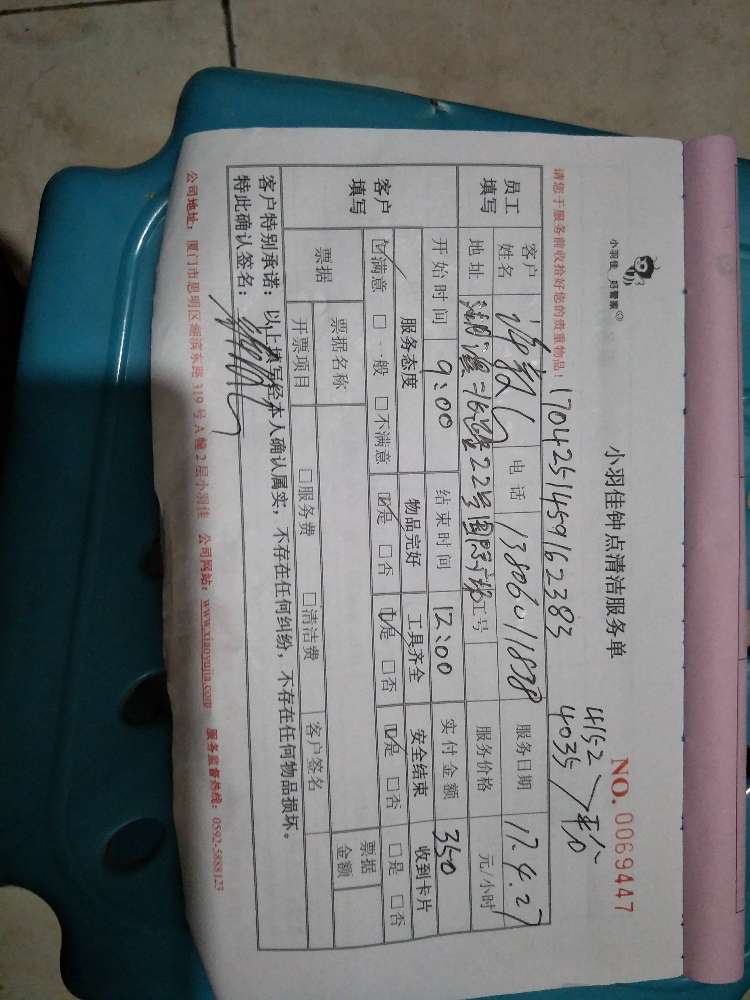 小羽佳 好管家
小羽佳钟点清洁服务单
NO. 0069447
4152
4035
平分
请您于服务前收拾好您的贵重物品！
1704251459162383
员工填写
客户姓名 电话 13806011838 服务日期 17.4.27
地址 22号 工号 服务价格 元/小时
开始时间 9:00 结束时间 12:00 实付金额 350
客户填写
服务态度 物品完好 工具齐全 安全结束 收到卡片
☑满意 □一般 □不满意 ☑是 □否 ☑是 □否 ☑是 □否 □是 □否
票据 票据名称 票据金额
开票项目 □服务费 □清洁费 客户签名
客户特别承诺：以上填写经本人确认属实，不存在任何纠纷，不存在任何物品损坏。
特此确认签名：
公司地址：厦门市思明区湖滨东路319号A幢2层小羽佳 公司网站：www.xiaoyujia.com 服务监督热线：0592-5888123